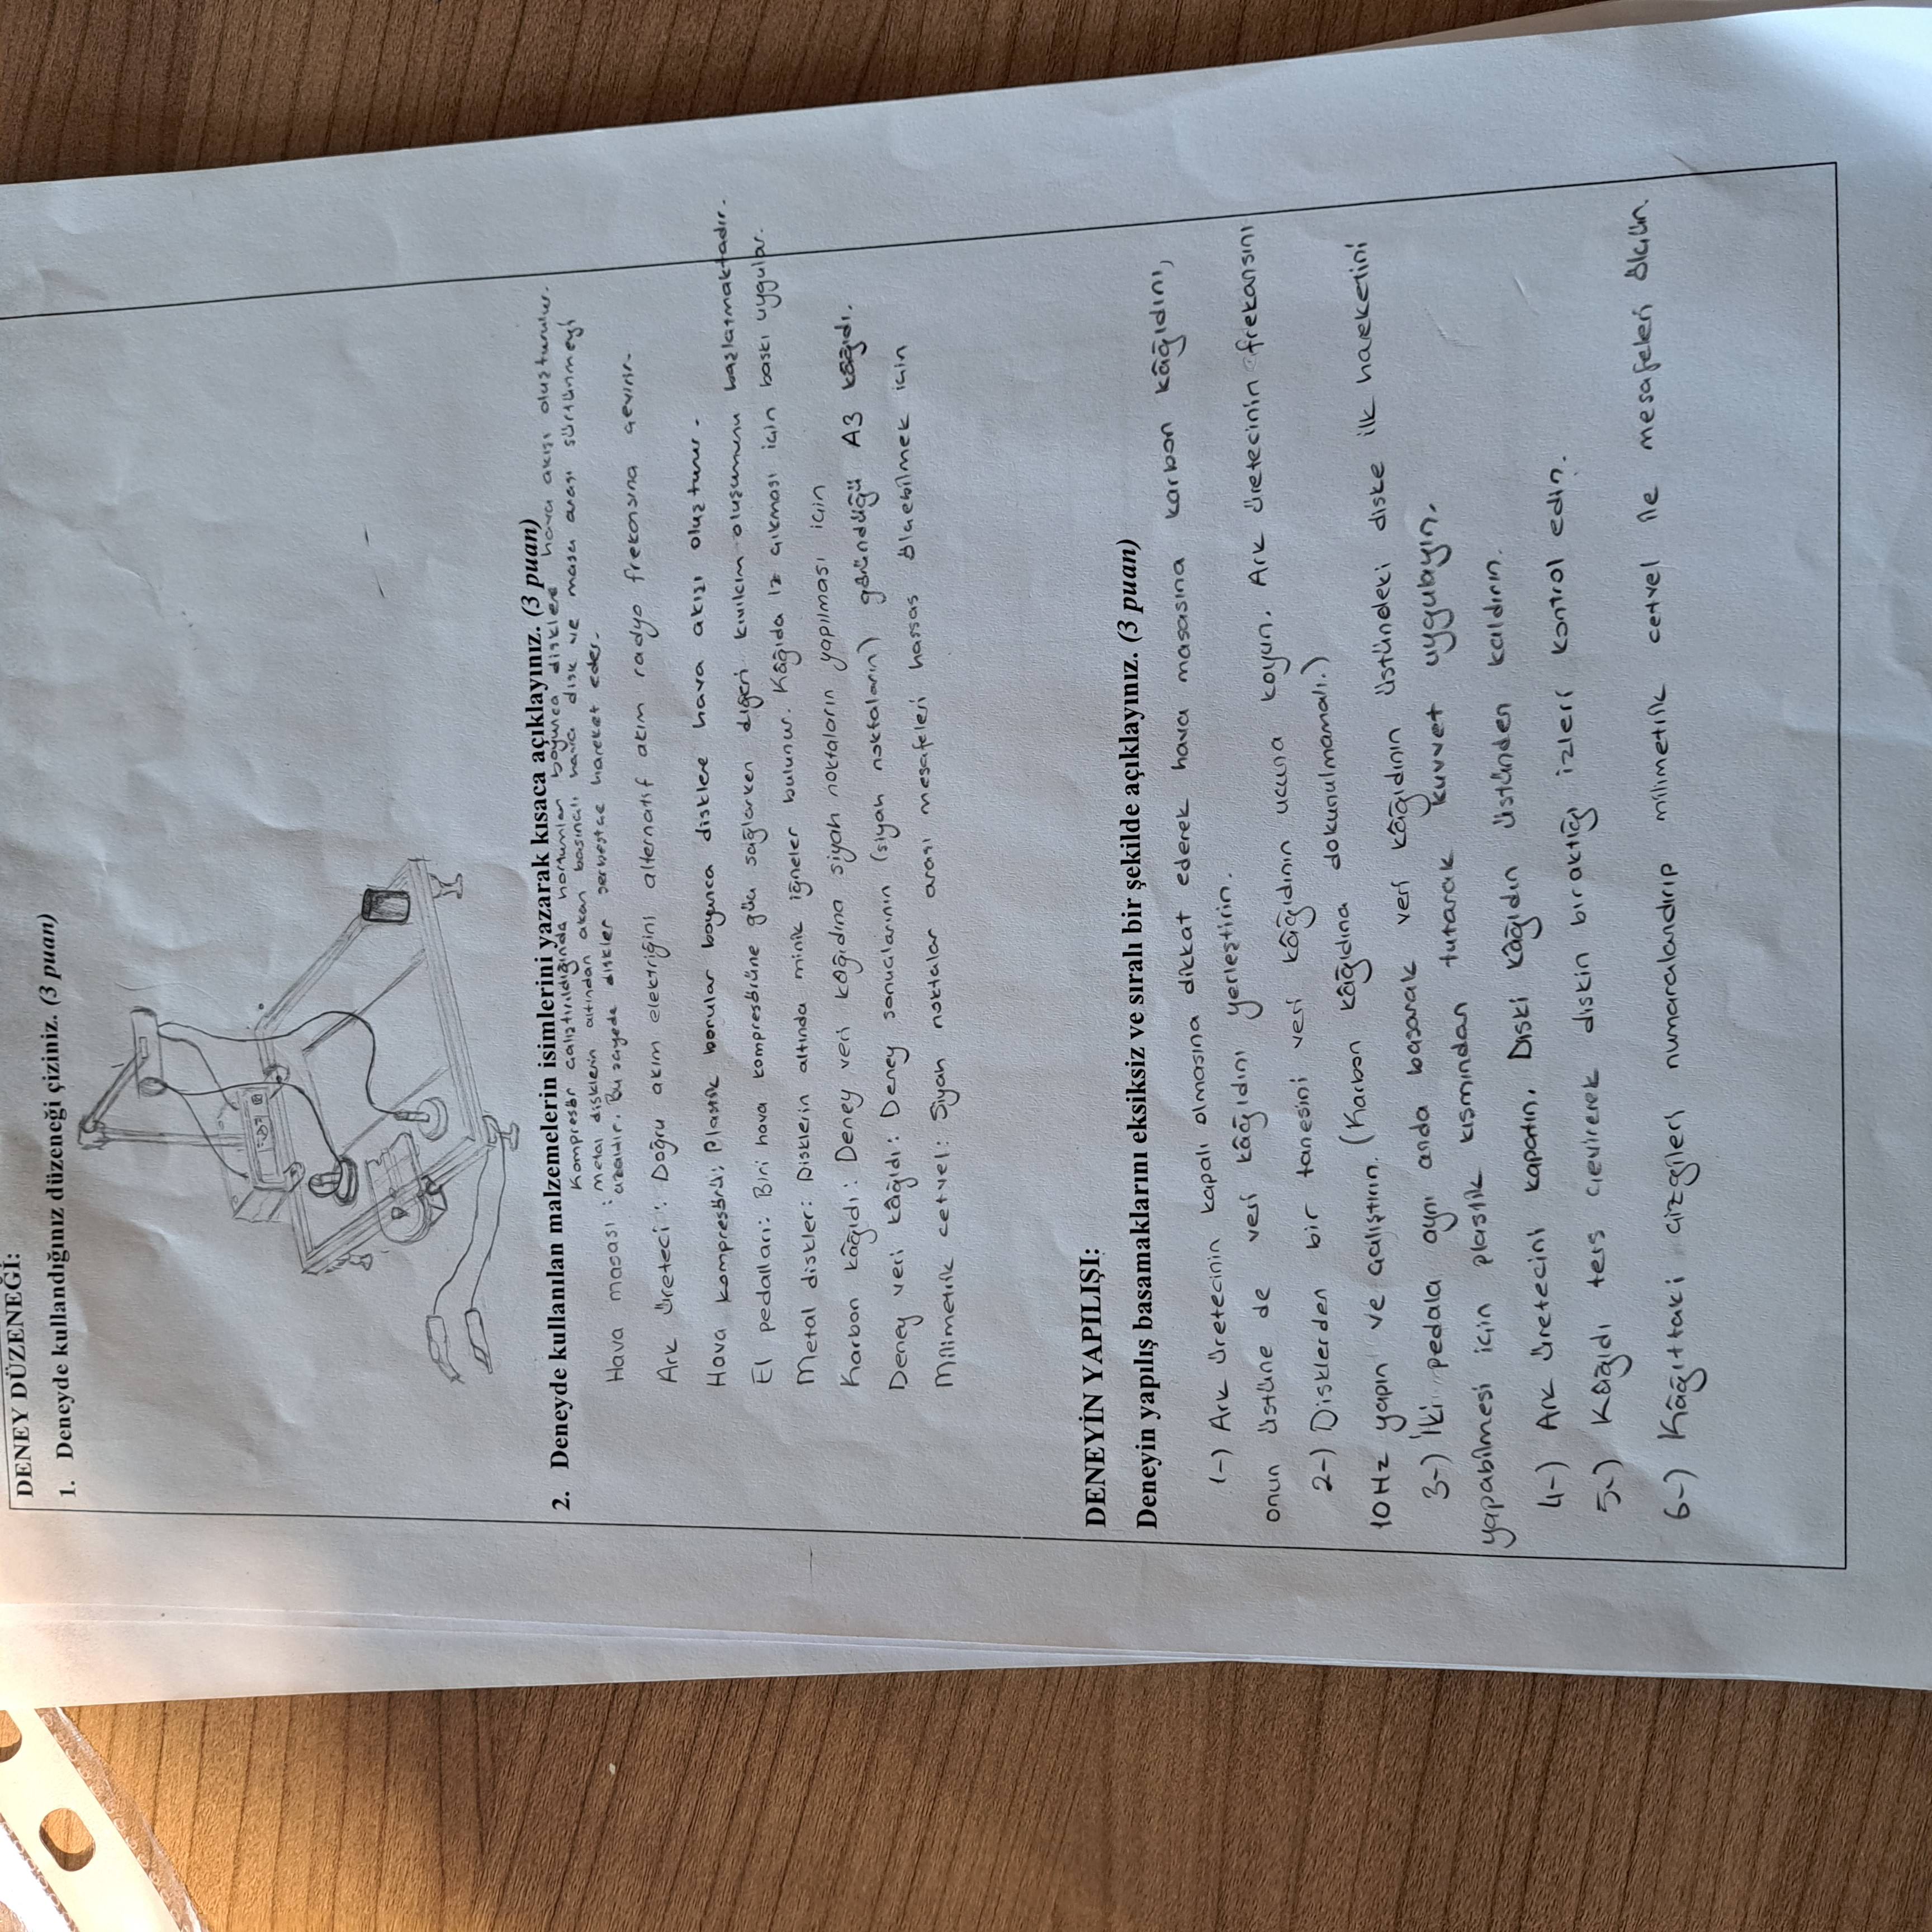 DENEY DÜZENEĞİ:
1. Deneyde kullandığınız düzeneği çiziniz. (3 puan)
2. Deneyde kullanılan malzemelerin isimlerini yazarak kısaca açıklayınız. (3 puan)
Kompresör çalıştırıldığında hortumlar boyunca disklere hava akışı oluşturulur.
Metal disklerin altından akan basınçlı hava disk ve masa arası sürtünmeyi
Hava masası : azaltır. Bu sayede diskler serbestçe hareket eder.
Ark üreteci : Doğru akım elektriğini alternatif akım radyo frekansına çevirir.
Hava kompresörü: Plastik borular boyunca disklere hava akışı oluşturur.
El pedalları: Biri hava kompresörüne güç sağlarken diğeri kıvılcım oluşumunu başlatmaktadır.
Metal diskler: Disklerin altında minik iğneler bulunur. Kâğıda iz çıkması için baskı uygular.
Karbon kâğıdı: Deney veri kâğıdına siyah noktaların yapılması için
Deney veri kâğıdı: Deney sonuçlarının (siyah noktaların) göründüğü A3 kâğıdı.
Milimetrik cetvel: Siyah noktalar arası mesafeleri hassas ölçebilmek için
DENEYİN YAPILIŞI:
Deneyin yapılış basamaklarını eksiksiz ve sıralı bir şekilde açıklayınız. (3 puan)
1-) Ark üretecinin kapalı olmasına dikkat ederek hava masasına karbon kâğıdını,
onun üstüne de veri kâğıdını yerleştirin.
2-) Disklerden bir tanesini veri kâğıdının ucuna koyun. Ark üretecinin frekansını
10Hz yapın ve çalıştırın. (Karbon kâğıdına dokunulmamalı.)
3-) İki pedala aynı anda basarak veri kâğıdının üstündeki diske ilk hareketini
yapabilmesi için plastik kısmından tutarak kuvvet uygulayın.
4-) Ark üretecini kapatın. Diski kâğıdın üstünden kaldırın.
5-) Kâğıdı ters çevirerek diskin bıraktığı izleri kontrol edin.
6-) Kâğıttaki çizgileri numaralandırıp milimetrik cetvel ile mesafeleri ölçün.